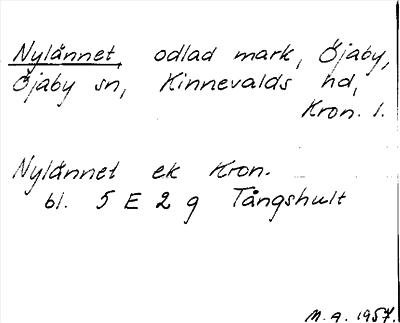 Nylännet, odlad mark, Öjaby,
Öjaby sn, Kinnevalds hd,
Kron. l.
Nylännet ek Kron.
bl. 5 E 2 g Tångshult
M. g. 1957.